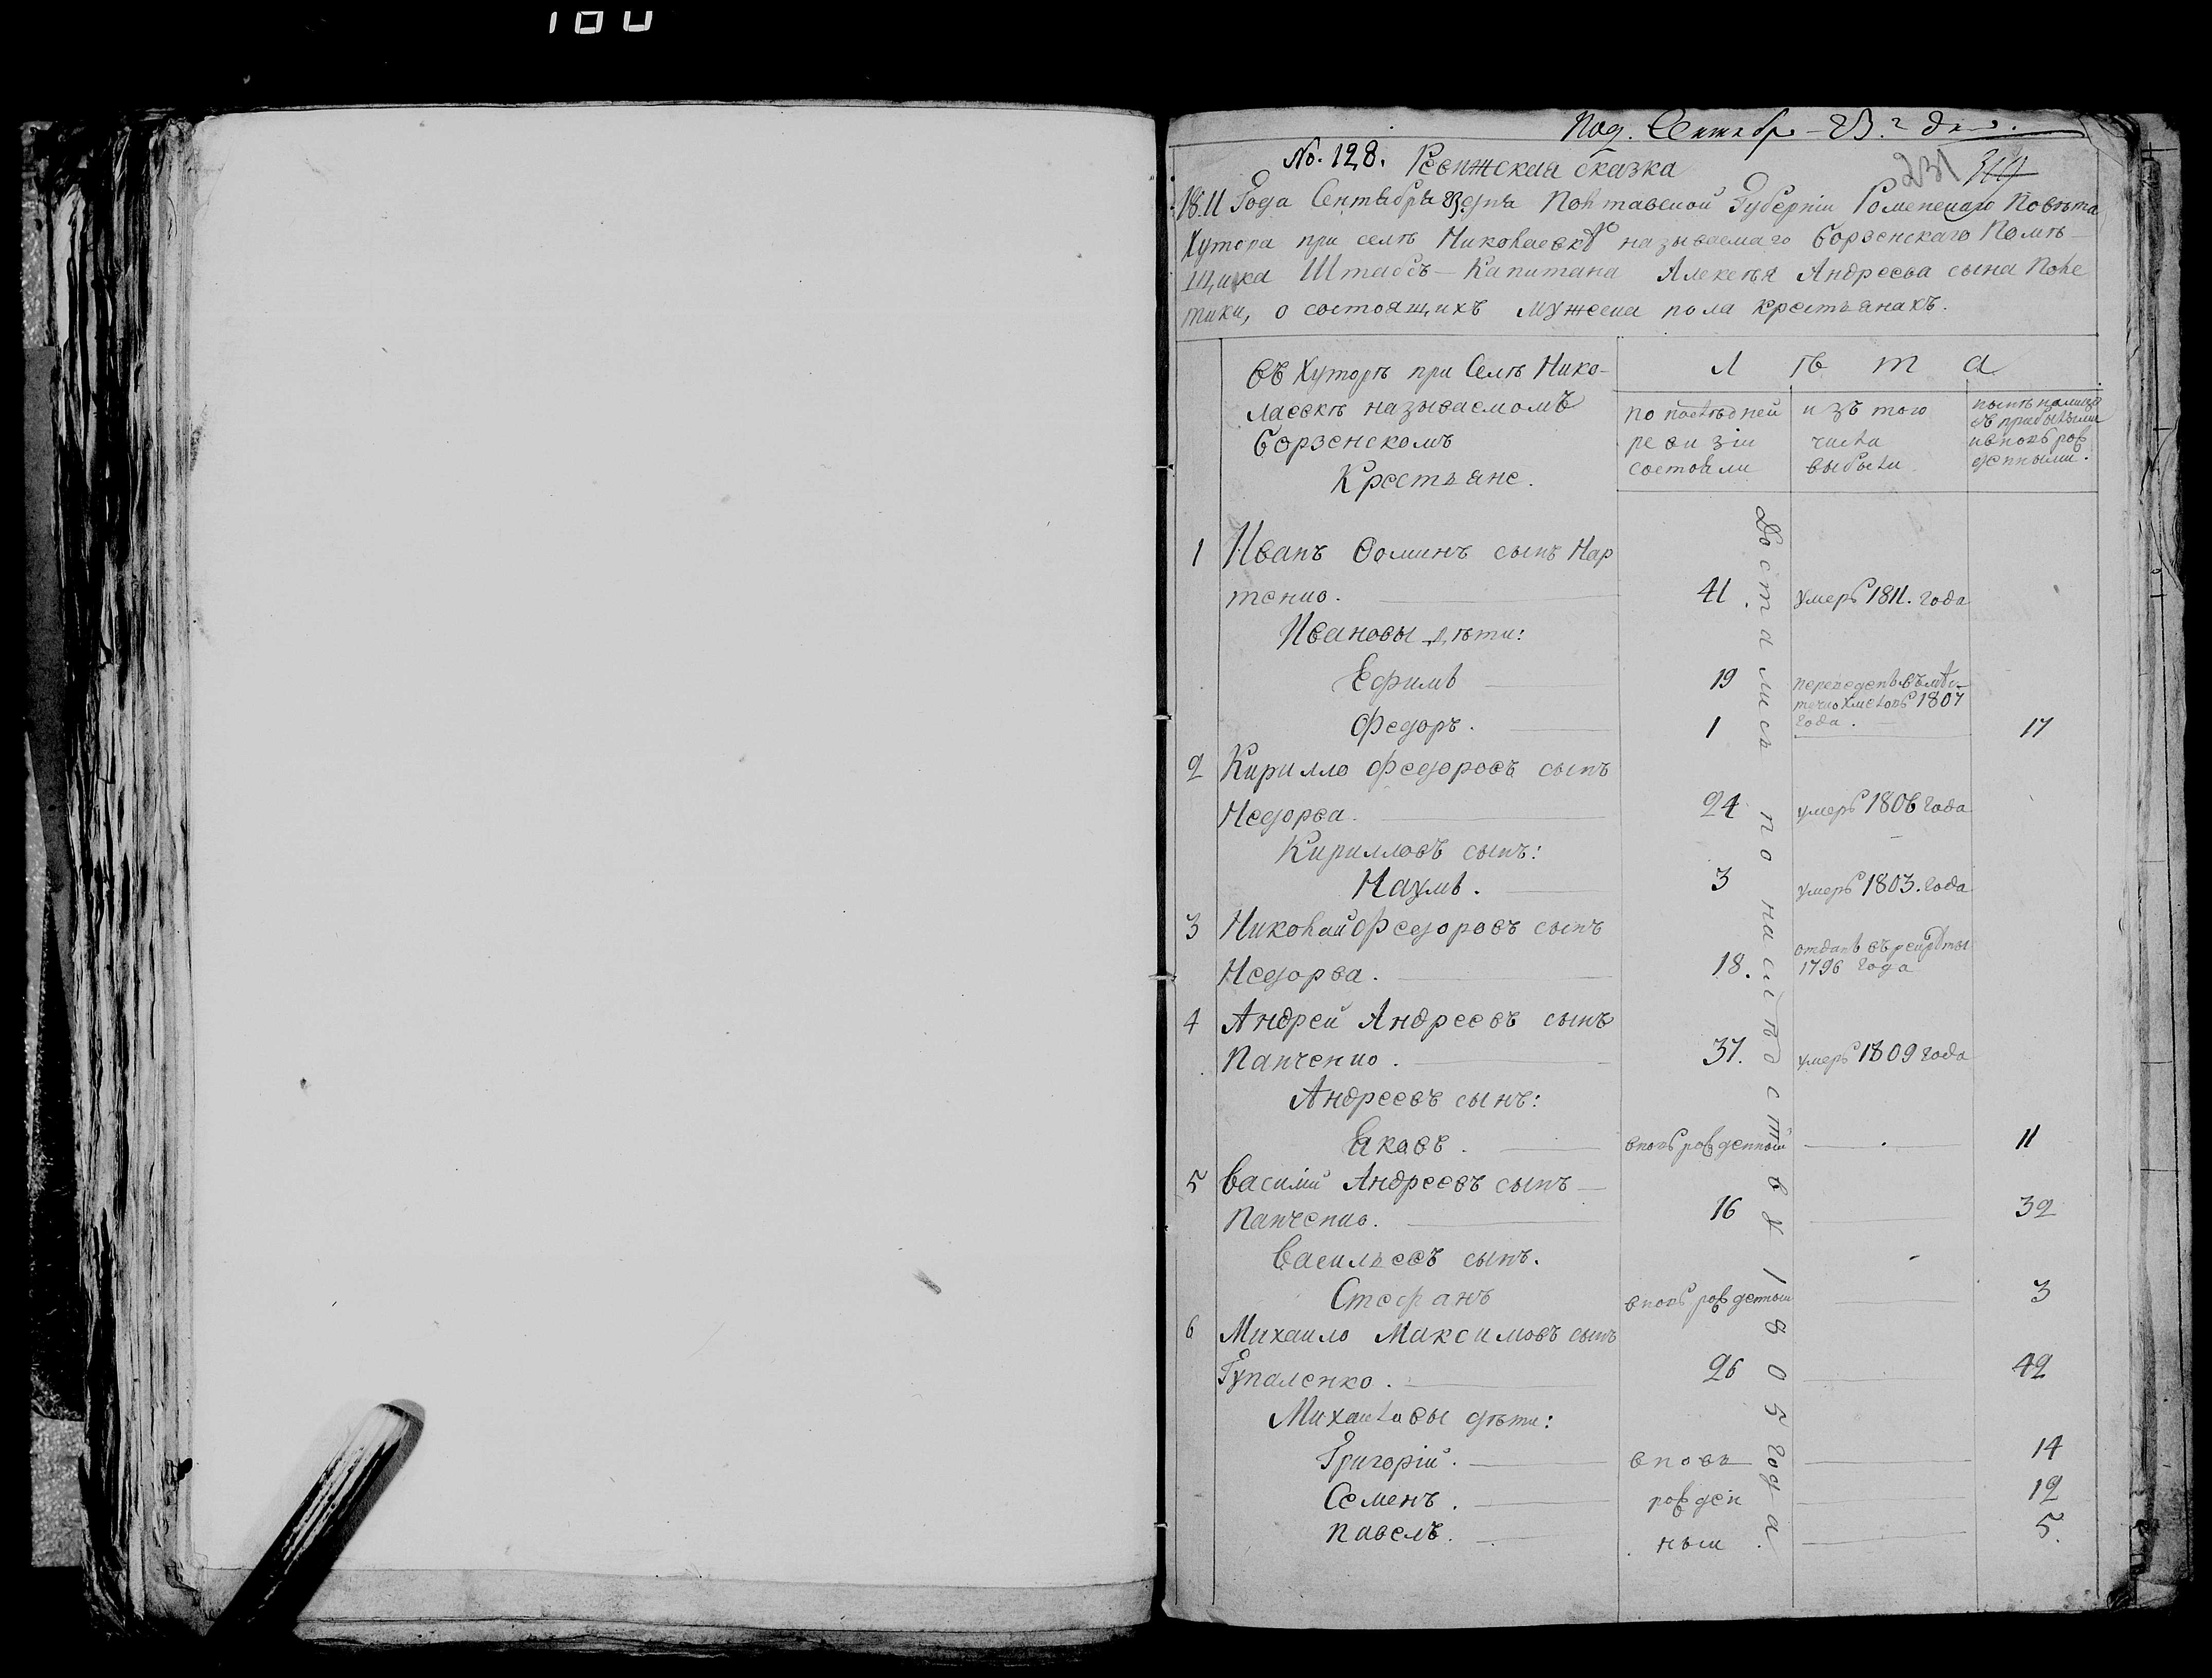 100
Под. Сентябр 23.г дня.
No. 128. Ревижская сказка
231
1811 Года Сентября 23 дня Полтавской Губерніи Роменскаго Повѣта
Хутора при селѣ Николаевкѣ называемаго Борзенскаго Помѣ-
щика Штабсъ-Капитана Алексѣя Андреева сына Поле
тики, о состоящихъ мужеска пола крестьянахъ.
въ Хуторѣ при Селѣ Нико-
лаевкѣ называемомъ
Борзенскомъ
Крестьяне.
Л ѣ т а
по послѣдней
ревизіи
состояли
изъ того
числа
выбыли
нынѣ налицо
съ прибылыми
и вновь рож
денными.
Достались по наслѣдству 1805 года
1 Иванъ Фоминъ сынъ Нар
тенко. 41. умеръ 1811. года
Ивановы дѣти:
Ефимъ 19 переведенъ въ мѣс-
течко Хмеловъ 1807
года.
Федоръ. 1 17
2 Кирилло Федоровъ сынъ
Недорва. 24 умеръ 1806 года
Кирилловъ сынъ:
Наумъ. 3 умеръ 1803. года
3 Николай Федоровъ сынъ
Недорва. 18. отданъ въ рекруты
1796 года
4 Андрей Андреевъ сынъ
Панченко. 37. умеръ 1809 года
Андреевъ сынъ:
Яковъ. вновь рожденный 11
5 Василій Андреевъ сынъ
Панченко. 16 32
Васильевъ сынъ.
Стефанъ вновь рожденный 3
6 Михаило Максимовъ сынъ
Гупаленко. 26 42
Михаиловы дѣти:
Григорій. вновь 14
Семенъ. рожден 12
Павелъ. ныи 5.